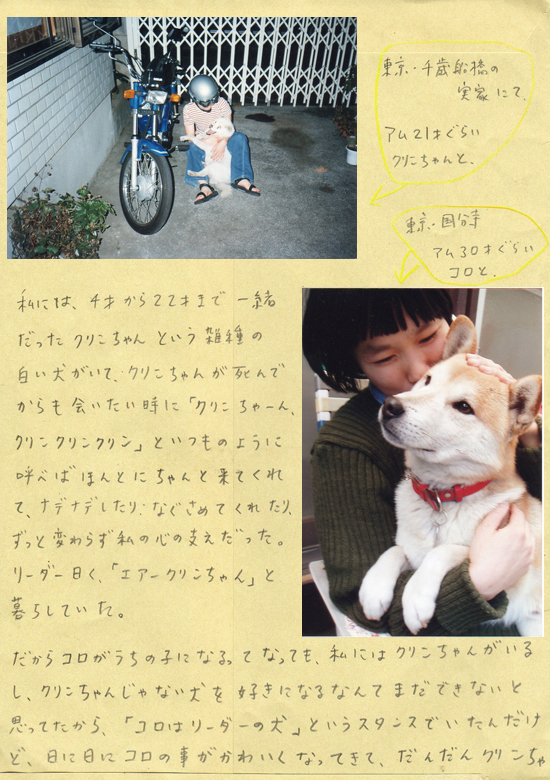 東京・千歳船橋の
実家にて、
アム21才ぐらい
クリンちゃんと、
東京・国分寺
アム30才ぐらい
コロと、
私には、4才から22才まで一緒
だったクリンちゃんという雑種の
白い犬がいて、クリンちゃんが死んで
からも会いたい時に「クリンちゃーん、
クリンクリンクリン」といつものように
呼べばほんとにちゃんと来てくれ
て、ナデナデしたり、なぐさめてくれたり、
ずっと変わらず私の心の支えだった。
リーダー曰く、「エアークリンちゃん」と
暮らしていた。
だからコロがうちの子になるってなっても、私にはクリンちゃんがいる
し、クリンちゃんじゃない犬を好きになるなんてまだできないと
思ってたから、「コロはリーダーの犬」というスタンスでいたんだけ
ど、日に日にコロの事がかわいくなってきて、だんだんクリンちゃ